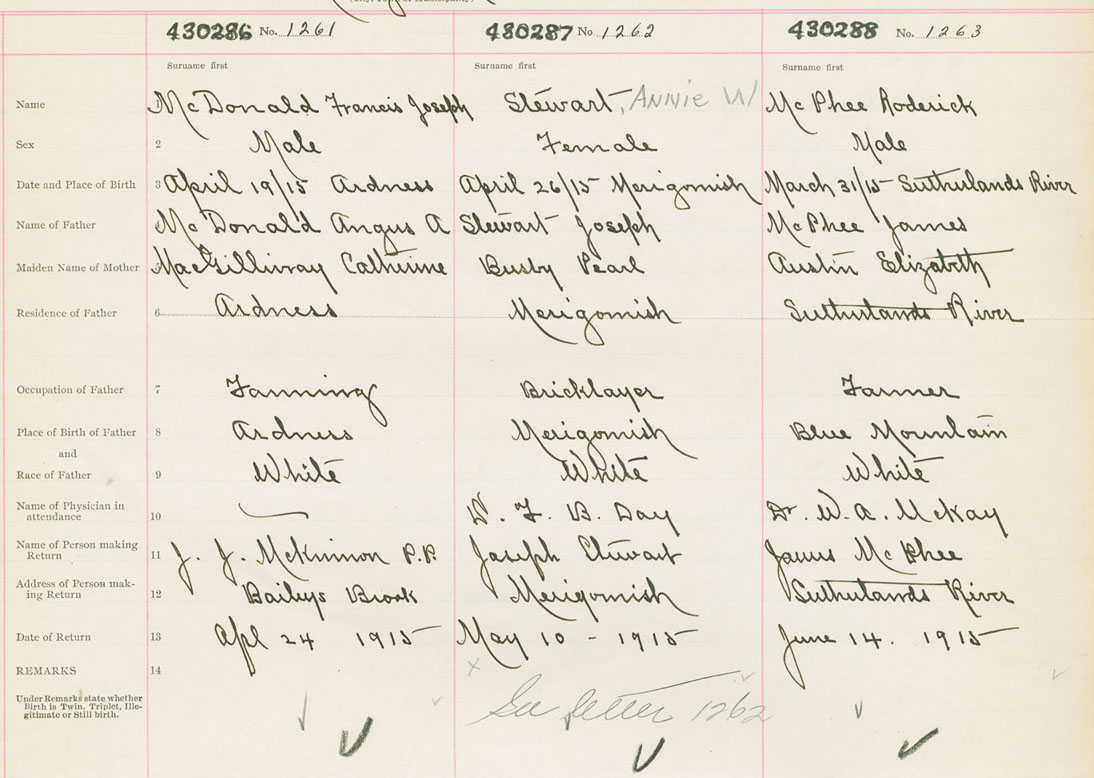 430286 No. 1261 430287 No. 1262 430288 No. 1263
Surname first Surname first Surname first
Name 1 McDonald Francis Joseph Stewart, Annie W McPhee Roderick
Sex 2 Male Female Male
Date and Place of Birth 3 April 19/15 Ardness April 26/15 Merigomish March 31/15 Sutherlands River
Name of Father McDonald Angus A Stewart Joseph McPhee James
Maiden Name of Mother 5 MacGillivray Catherine Busby Pearl Austin Elizabeth
Residence of Father 6 Ardness Merigomish Sutherlands River
Occupation of Father 7 Farming Bricklayer Farmer
Place of Birth of Father 8 Ardness Merigomish Blue Mountain
and
Race of Father 9 White White White
Name of Physician in
attendance 10 Dr. F. B. Day Dr. W. A. McKay
Name of Person making
Return 11 J. J. McKinnon P.P. Joseph Stewart James McPhee
Address of Person mak-
ing Return 12 Baileys Brook Merigomish Sutherlands River
Date of Return 13 Apl 24 1915 May 10 - 1915 June 14. 1915
REMARKS 14 x
Under Remarks state whether
Birth is Twin, Triplet, Ille-
gitimate or Still birth.
See letter 1262